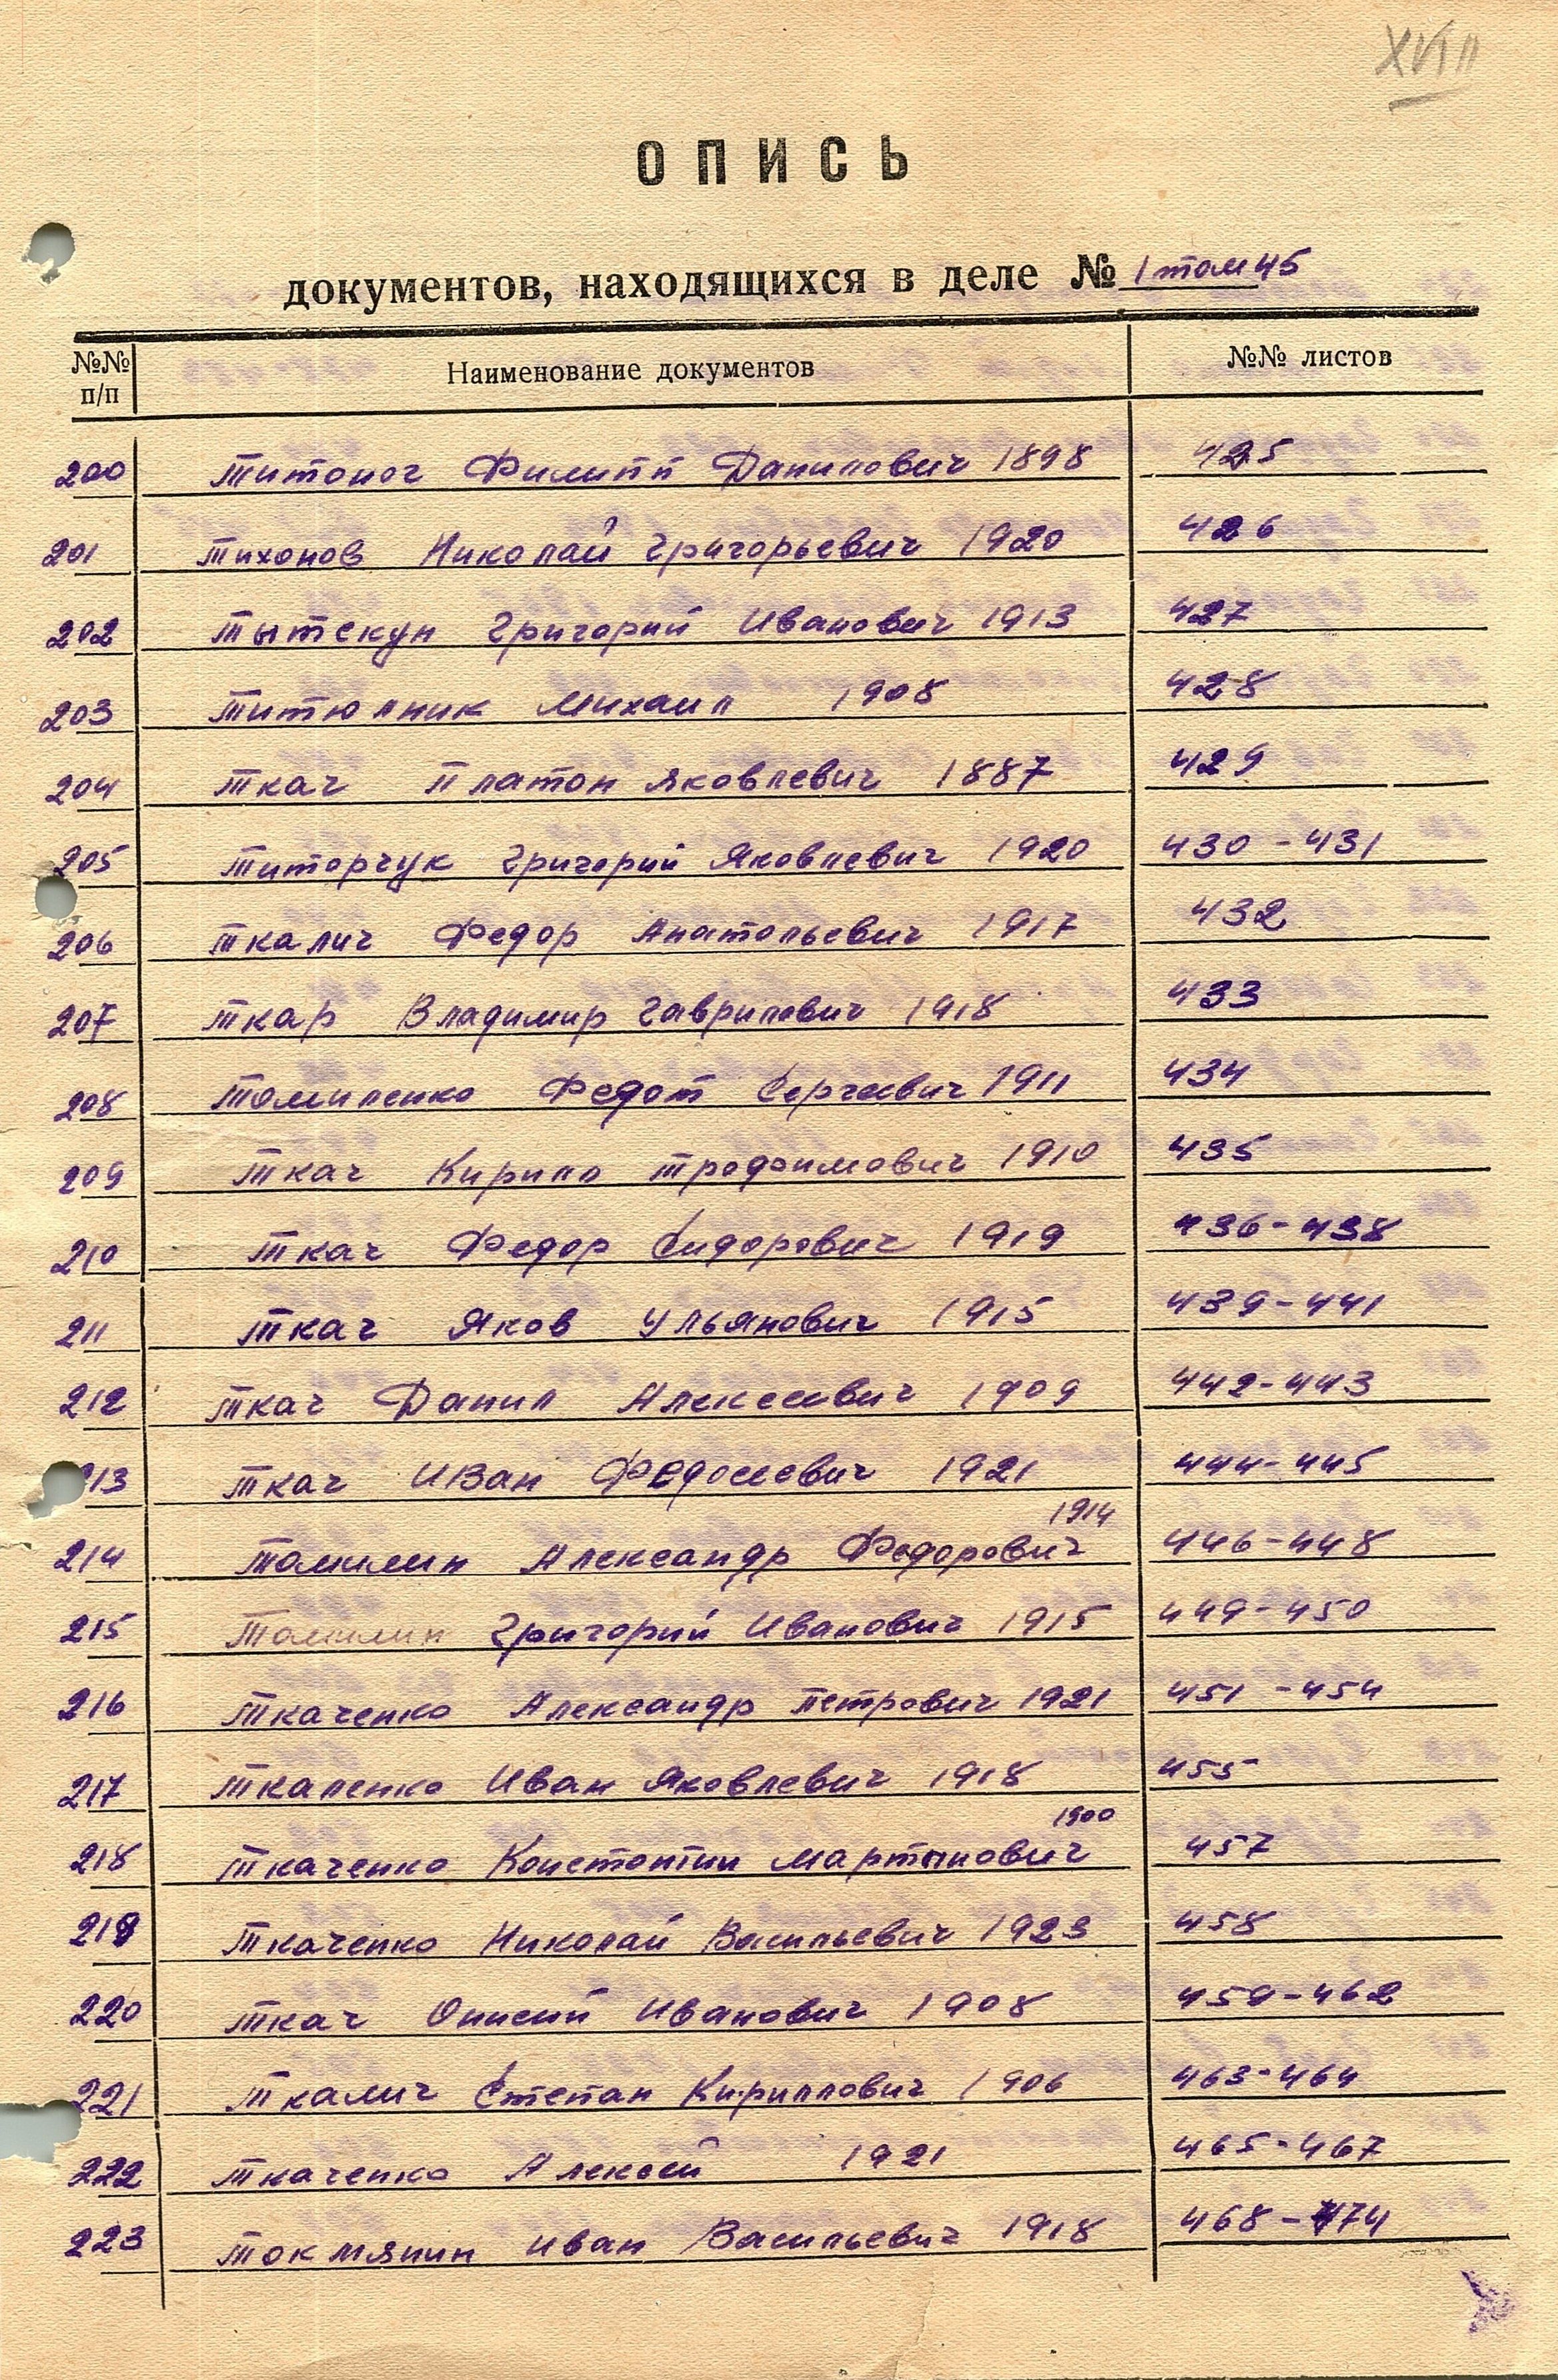 XVIII
ОПИСЬ
документов, находящихся в деле № 1 том 45
№№ п/п Наименование документов №№ листов
200 Титоноч Филипп Данилович 1898 425
201 Тихонов Николай Григорьевич 1920 426
202 Тытскун Григорий Иванович 1913 427
203 Титюлник Михаил 1908 428
204 Ткач Платон Яковлевич 1887 429
205 Титорчук Григорий Яковлевич 1920 430-431
206 Ткалич Федор Анатольевич 1917 432
207 Ткар Владимир Гаврилович 1918 433
208 Томиленко Федот Сергеевич 1911 434
209 Ткач Кирилл Трофимович 1910 435
210 Ткач Федор Сидорович 1919 436-438
211 Ткач Яков Ульянович 1915 439-441
212 Ткач Данил Алексеевич 1909 442-443
213 Ткач Иван Федосеевич 1921 444-445
214 Томилин Александр Федорович 1914 446-448
215 Томилин Григорий Иванович 1915 449-450
216 Ткаченко Александр Петрович 1921 451-454
217 Ткаленко Иван Яковлевич 1918 455
218 Ткаченко Константин Мартынович 1900 457
219 Ткаченко Николай Васильевич 1923 458
220 Ткач Онисий Иванович 1908 459-462
221 Ткалич Степан Кириллович 1906 463-464
222 Ткаченко Алексей 1921 465-467
223 Токмянин Иван Васильевич 1918 468-474